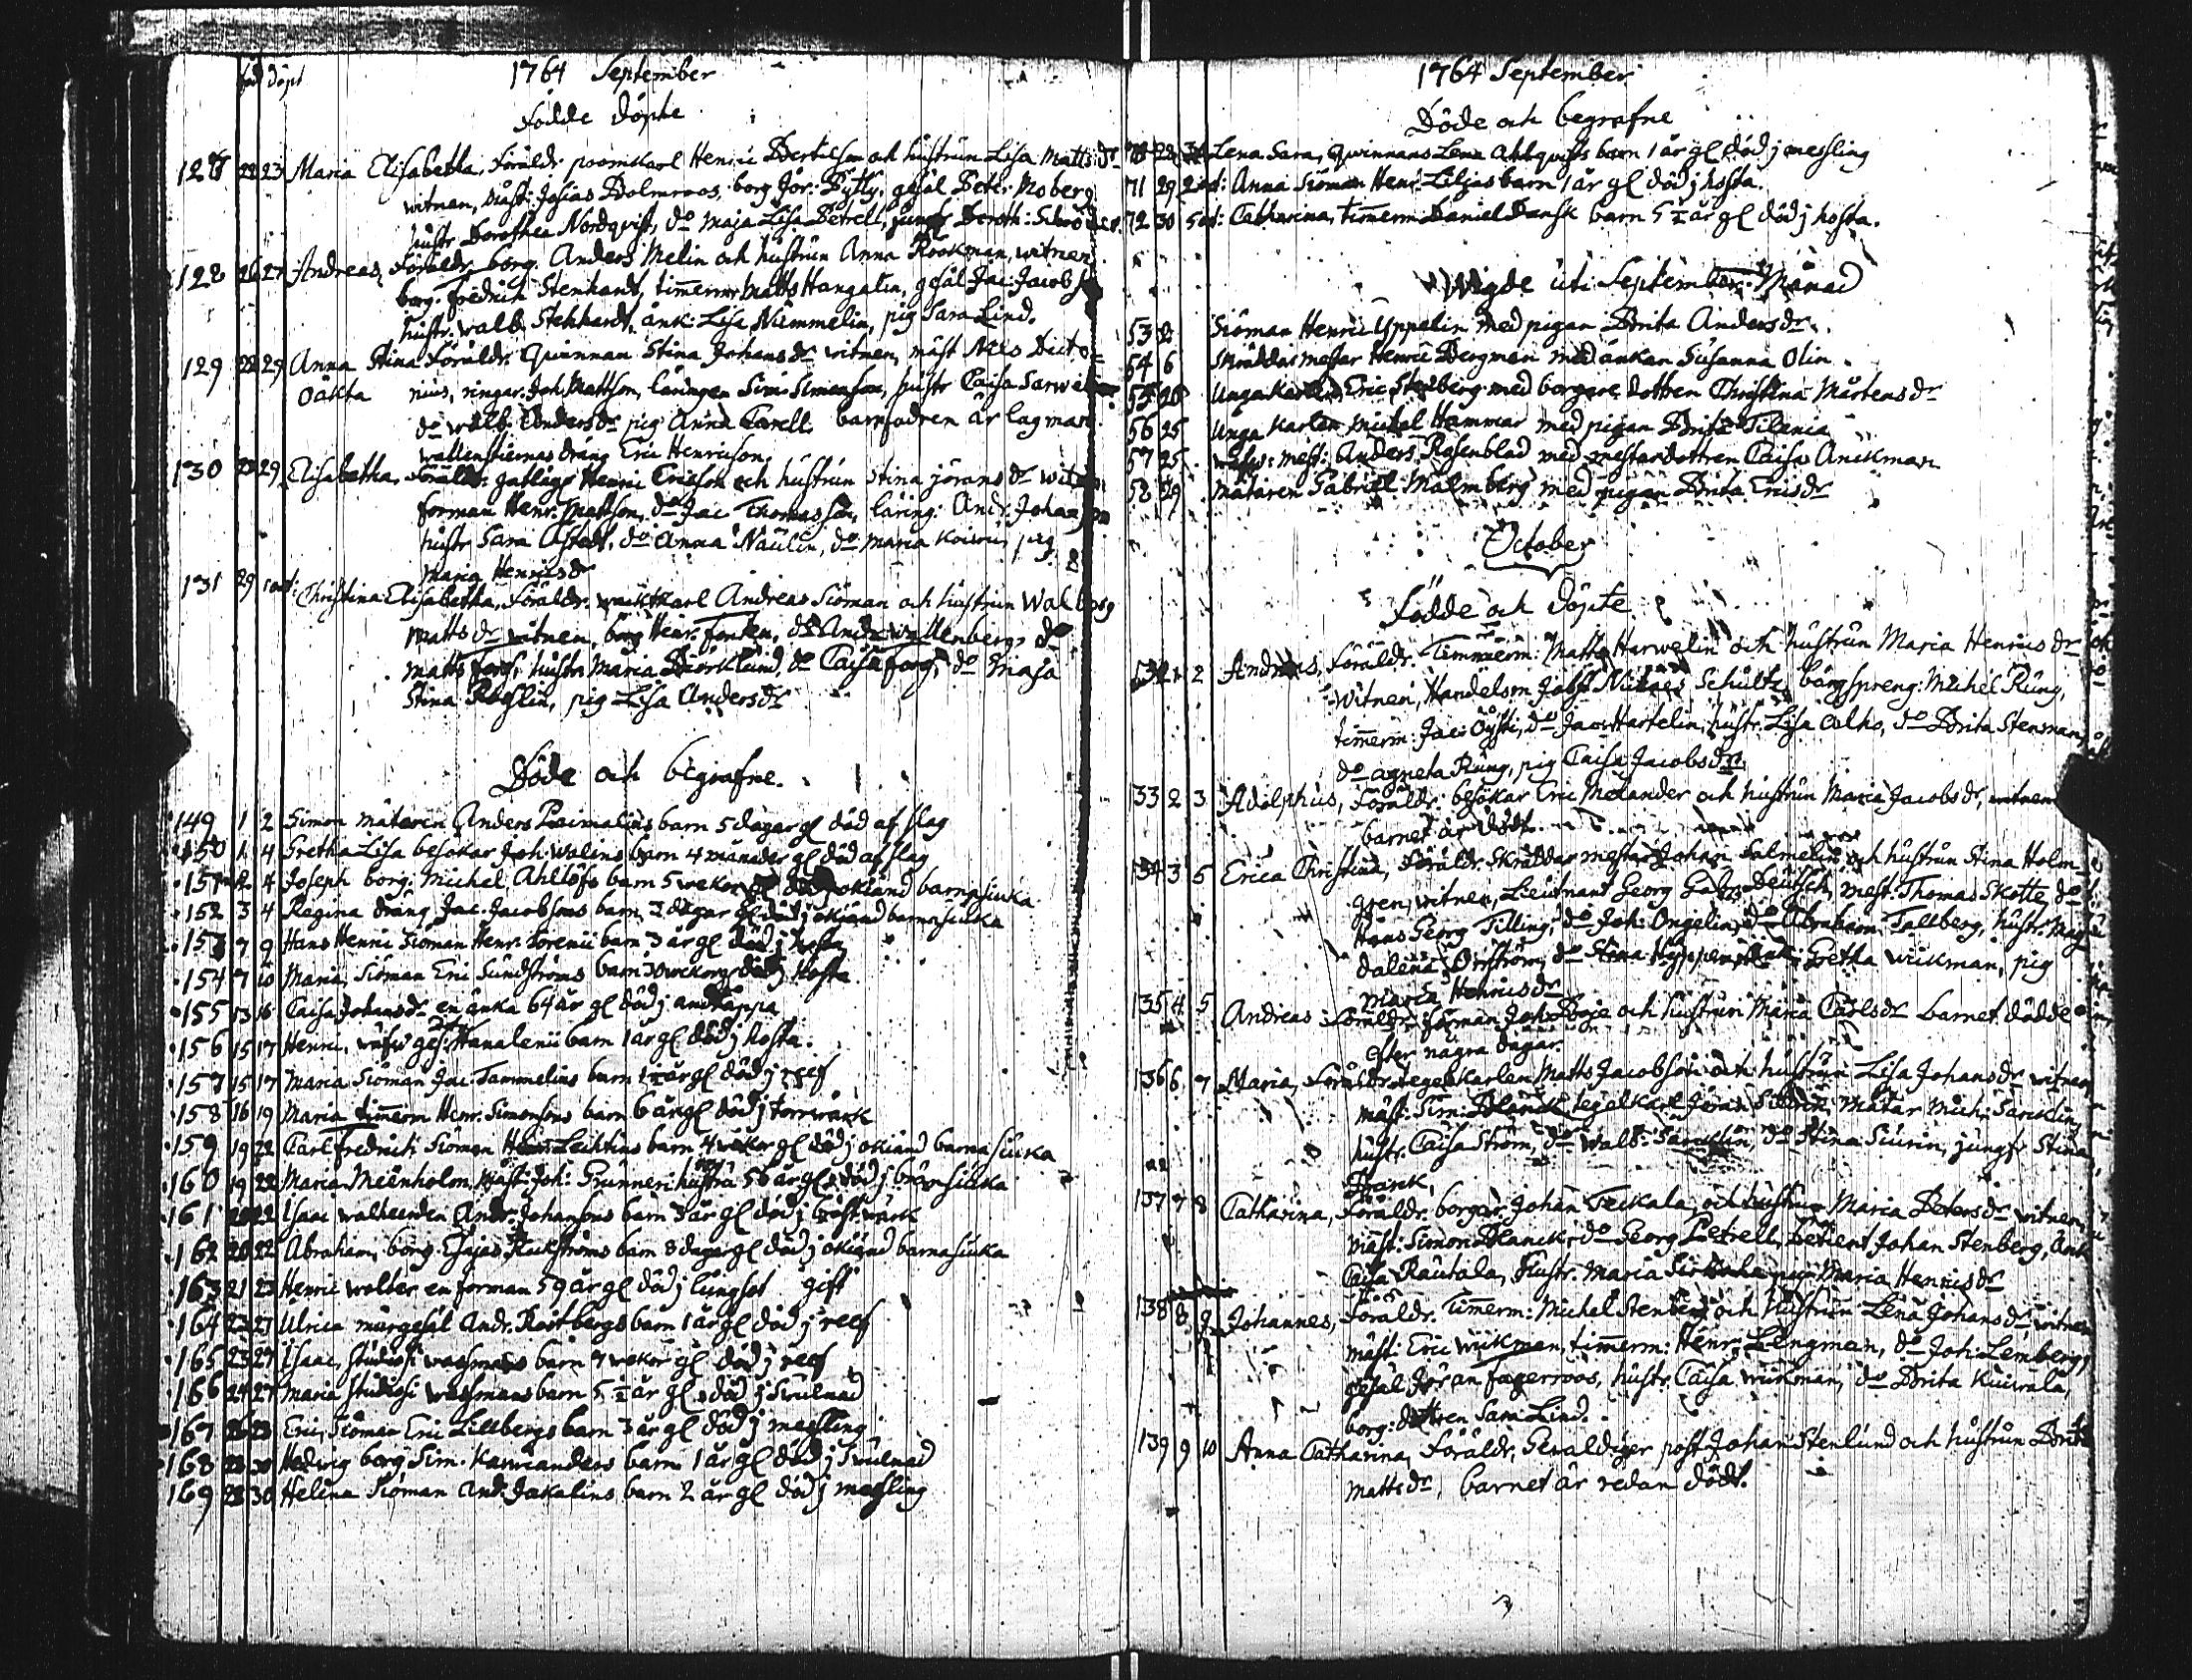 född döpt 1764 September
Födde döpte
127 22 23 Maria Elisabetha, Föräldr. Henric Bertilson och hustrun Lisa Matts dr
witnen, mäst: Josias Bolmroos, borg Jör: Pytty, gesäl Petr. Moberg
hustr Dorothea Nordqvist, do Maja Lisa Petrell, jungf Doroth: Schröder.
128 26 27 Andreas, Föräldr. borg. Anders Melin och hustrun Anna Rookman, witnen
borg. Fredrich Stenhardt, timmerm Matts Hangalin, gesäl Jac: Jacobs
hustr. walb. Stenhardt, änk: Lisa Nummelin, pig Sara Lind.
129 28 29 Anna Stina Föräldr. Qvinnan Stina Johans dr witnen, mäst Nils Ditto=
oäkta nius, ringar. Joh. Mattson, läringen Sim Simonson, hustr Caisa Sarwi
do walb. Anders dr pig Anna Carell. barnfadren är lagman
wallenstiernas dräng Eric Henricson.
130 28 29 Elisabetha, Föräldr. Henric Ericsson och hustrun Stina jörans dr witn
forman Henr. Mattson, do Jac Thomasson, läring: Andr. Johanson
hustr Sara Astedt, do Anna Naulin, do Maria pig
Maria Henrics dr
131 29 1 oct: Christina Elisabetha, Föräldr. wacktkarl Andreas Siöman och hustrun Walborg
Matts dr witnen, borg Henr. Fonten, do Andr wallenberg, do
Matts Forss, hustr Maria Biörklund, do Caisa Forss, do Maja
Stina Röglin, pig Lisa Anders dr
Döde och begrafne.
149 1 2 Simon mätaren Anders Raimalins barn 5 dagar gl död af slag
150 1 4 Gretha Lisa besökar Joh. Walins barn 4 månader gl död af slag
151 2 4 Joseph borg. Michel Ahllöfs barn 5 wekor gl död okiänd barnasiuka
152 3 4 Regina dräng Jac. Jacobsons barn 3 dagar gl död j okiänd barnasiuka
153 7 9 Hans Henric Siöman Henr. Lorenii barn 3 år gl död j hosta
154 7 10 Maria, Siöman Eric Sundströms barn 30 wekor gl död j hosta
155 13 16 Caisa Johans dr en änka 64 år gl död j andtäppa
156 15 17 Henric, wäfw ges: Hanalenii barn 1 år gl död j hosta.
157 15 17 Maria Siöman Jac. Tammelins barn 1½ år gl död j reef
158 16 19 Maria timmerm Henr. Simonsons barn 6 år gl död j torrwärk
159 19 22 Carl fredrich Siöman Henr Leiktins barn 4 wekor gl död j okiänd barnasiuka
160 19 22 Maria Meenholm, Mäst: Joh: Grunneri hustru 56 år gl död j brösiuka
161 20 22 Isaac walheerden Andr. Johansons barn 3 år gl död j bröstwärk
162 20 22 Abraham, borg. Esajas Räckströms barn 8 dagar gl död j okiänd barnasiuka
163 21 23 Henric wolter en forman 59 år gl död j lungsot gift
164 23 27 Ulrica murgesäl Andr. Rostbergs barn 1 år gl död j reef
165 23 27 Isaac, studiosi wassmans barn 7 wekor gl död j reef
166 24 27 Maria studiosi wassmans barn 5½ år gl död j swulnad
167 26 28 Eric, Siöman Eric Lillbergs barn 3 år gl död j messling
168 28 30 Hedwig borg Sim. Kawianders barn 1 år gl död j swulnad
169 28 30 Helena Siöman And. Jakalins barn 2 år gl död j messling
1764 September
Döde och begrafne
70 28 Lena Sara, qwinnans Lena Ahlqvists barn 1 år gl död j messling
71 29 2 oct: Anna Siöman Henr. Liljas barn 1 år gl död j hosta.
72 30 5 oct: Catharina, timmerm Daniel Dansk barn 5½ år gl död j hosta.
Wigde uti September Månad
53 2 Siöman Henric Yppelin med pigan Brita Anders dr
54 6 Skräddar mestar Henric Bergman med änkan Susanna Olin
55 20 Unga Karlen Eric Stenberg med borgare dottren Christina Mårtens dr
56 25 Unga Karlen Michel Hammar med pigan Brita Tilania
57 25 wäfw: mest: Anders Rosenblad med mestardottren Caisa Anckman
58 29 mätaren Gabriel Malmberg med pigan Brita Erics dr
October
Födde och döpte
132 1 2 Andreas, Föräldr. Timmerm: Matts Harwelin och hustrun Maria Henrics dr
witnen, Handelsm Jobst Niclaes Schultz, bärgspreng: Michel Rung,
timmerm: Jac: Öysti, do Jac Hartelin, hustr. Lisa Alho, do Brita Stenman,
do agneta Rung, pig Caisa Jacobs dr
133 2 3 Adolphus, Föräldr. besökar Eric Melander och hustrun Maria Jacobs dr, witnen
barnet är dödt.
134 3 5 Erica Christina, Föräldr. Skräddar mestar Johan Salmelin och hustrun Stina Holm=
gren, witnen, Lieutnant Georg Gabr. Deutsch, mest: Thomas Skotte, do
Hans Georg Tilling, do Joh: Ongelin, do Abraham Tallberg, hustr. Mag=
dalena Örnström, do Stina Gretha wiikman, pig
Maria Henrics dr
135 4 5 Andreas Föräldr. forman Joh. Booje och hustrun Maria Carls dr barnet dödde
efter några dagar.
136 6 7 Maria, Föräldr. tegelkarlen Matts Jacobson och hustrun Lisa Johans dr witnen
mäst: Sim: Blanck, tegelkarl Jöran Mätar Mich: Sancklin,
hustr. Caisa Ström, do Walb: Sancklin, do Stina Siurin, jungf. Stina
Franck,
137 7 8 Catharina, Föräldr. borgar Johan Teckala, och hustrun Maria Peters dr witnen
Mäst: Simon Blanck, do Georg Petrell, Betient Johan Stenberg, Änk
Caisa Rautala, hustr. Maria pig Maria Henrics dr
138 8 9 Johannes, Föräldr. Timmerm: Michel Stenberg och hustrun Lena Johans dr witnen
mäst: Eric wiikman, timmerm: Henr. Lengman, do Joh: Lemberg,
gesäl Jöran fagerroos, hustr. Caisa wiikman, do Brita Kuiwala,
borg: dottren Sara Lind.
139 9 10 Anna Catharina, Föräldr. Gewaldiger post Johan Stenlund och hustrun Brita
Matts dr, barnet är redan dödt.